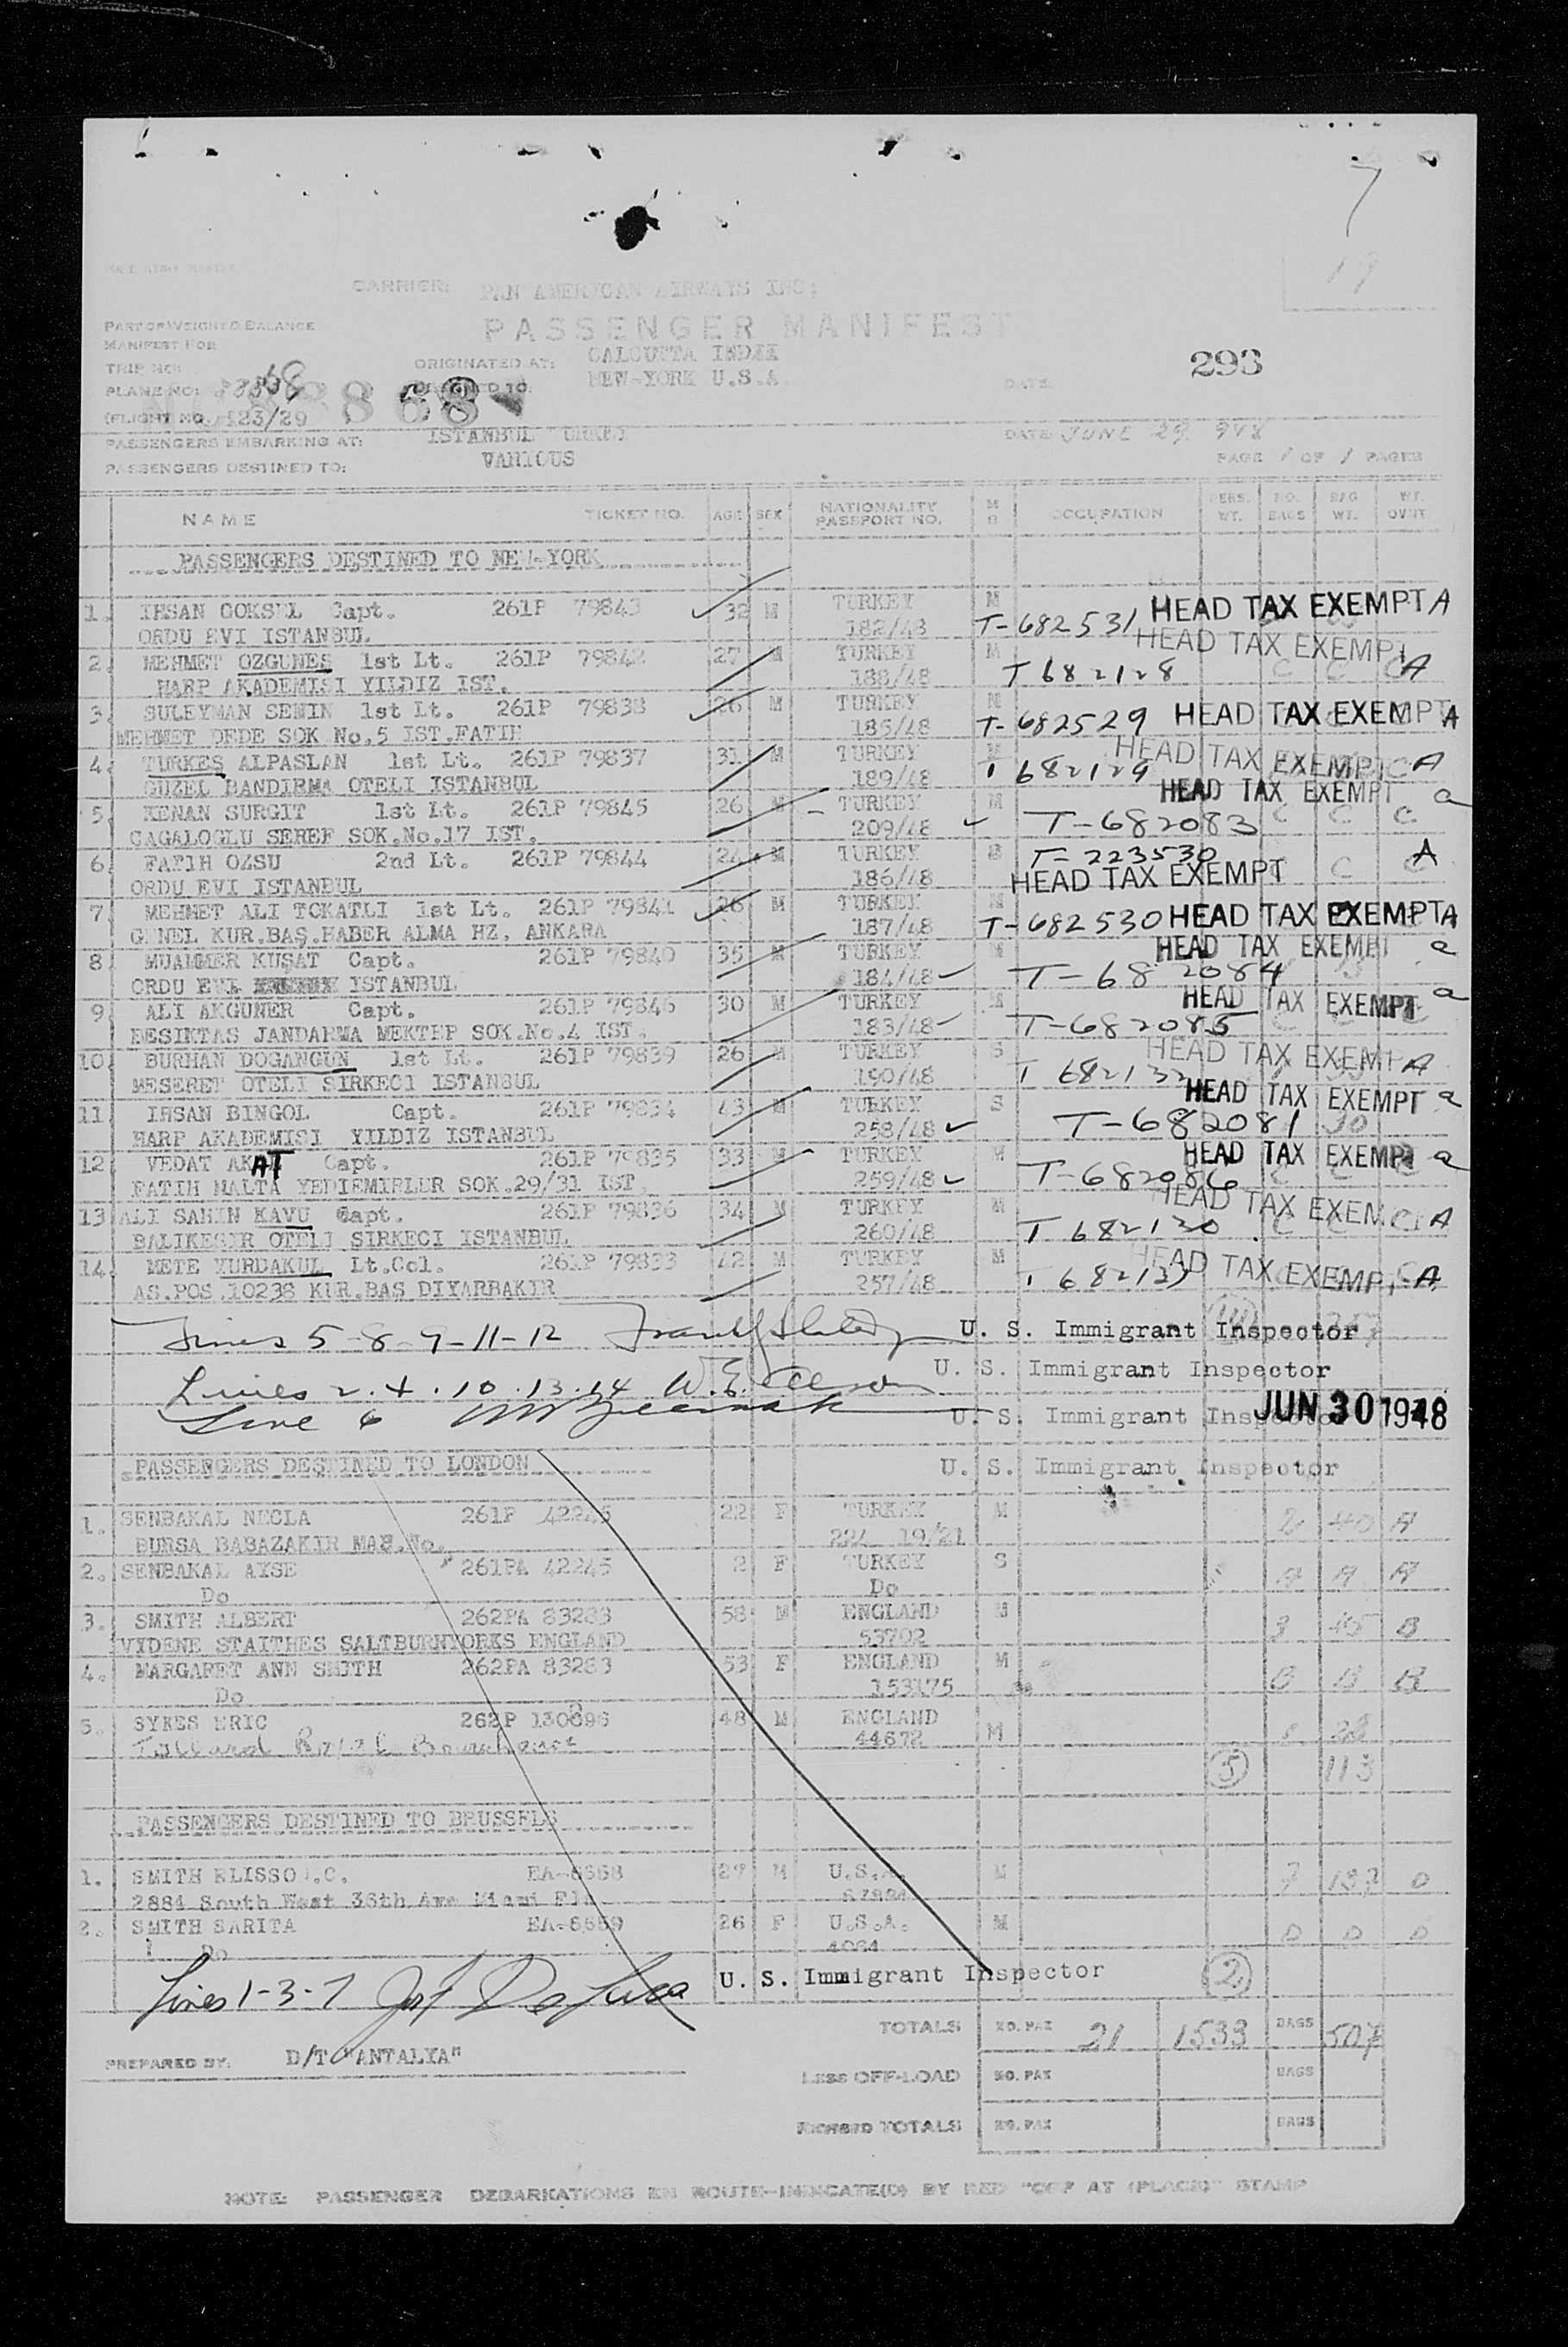 7
19
CARRIER: PAN AMERICAN AIRWAYS INC;
PASSENGER MANIFEST
PART OF WEIGHT & BALANCE
MANIFEST FOR
TRIP NO:
ORIGINATED AT: CALCUTTA INDIA
293
PLANE NO: 88868
NEW-YORK U.S.A.
DATE:
(FLIGHT NO. 123/29
PASSENGERS EMBARKING AT: ISTANBUL TURKEY
DATE JUNE 29, 948
PASSENGERS DESTINED TO: VARIOUS
PAGE 1 OF 1 PAGES
NAME TICKET NO. AGE SEX NATIONALITY PASSPORT NO. M S OCCUPATION PERS. WT. NO. BAGS BAG WT. WT. OVNT.
PASSENGERS DESTINED TO NEW-YORK
1. IHSAN GOKSEL Capt. 261P 79843 32 M TURKEY M HEAD TAX EXEMPT A
ORDU EVI ISTANBUL 182/48 T-682531
HEAD TAX EXEMPT
2. MEHMET OZGUNES 1st Lt. 261P 79842 27 M TURKEY M
HARP AKADEMISI YILDIZ IST. 188/48 T 682128 C C C A
3. SULEYMAN SENIN 1st Lt. 261P 79838 26 M TURKEY M
MEHMET DEDE SOK No.5 IST.FATIH 185/48 T-682529 HEAD TAX EXEMPT A
4. TURKES ALPASLAN 1st Lt. 261P 79837 31 M TURKEY M HEAD TAX EXEMPT A
GUZEL BANDIRMA OTELI ISTANBUL 189/48 T 682129
5. KENAN SURGIT 1st Lt. 261P 79845 26 M TURKEY M HEAD TAX EXEMPT a
CAGALOGLU SEREF SOK.No.17 IST. 209/48 T-682083 C C C
6. FATIH OZSU 2nd Lt. 261P 79844 24 M TURKEY S T-223530 A
ORDU EVI ISTANBUL 186/48 HEAD TAX EXEMPT C C
7. MEHMET ALI TOKATLI 1st Lt. 261P 79841 26 M TURKEY M
GENEL KUR.BAŞ.HABER ALMA HZ, ANKARA 187/48 T-682530 HEAD TAX EXEMPT A
8. MUAMMER KUSAT Capt. 261P 79840 35 M TURKEY M HEAD TAX EXEMPT a
ORDU EVI ISTANBUL 184/48 T-682084
9. ALI AKGUNER Capt. 261P 79846 30 M TURKEY M HEAD TAX EXEMPT a
BESIKTAS JANDARMA MEKTEP SOK.No.4 IST. 183/48 T-682085
10. BURHAN DOGANGUN 1st Lt. 261P 79839 26 M TURKEY S HEAD TAX EXEMP A
MESERET OTELI SIRKECI ISTANBUL 190/48 T 682132
11. IHSAN BINGOL Capt. 261P 79834 43 M TURKEY S HEAD TAX EXEMPT a
HARP AKADEMISI YILDIZ ISTANBUL 258/48 T-682081 30
12. VEDAT AKAT Capt. 261P 79835 33 M TURKEY M HEAD TAX EXEMPT a
FATIH MALTA YEDIEMIRLER SOK.29/31 IST. 259/48 T-682086
13 ALI SAHIN KAVU Capt. 261P 79836 34 M TURKEY M HEAD TAX EXEM A
BALIKESIR OTELI SIRKECI ISTANBUL 260/48 T 682130
14. METE YURDAKUL Lt.Col. 261P 79833 42 M TURKEY M HEAD TAX EXEMP, A
AS.POS.10236 KUR.BAS DIYARBAKIR 257/48
Lines 5-8-9-11-12 U. S. Immigrant Inspector
U. S. Immigrant Inspector
Lines 2.4.10.13.14
Line 6 U. S. Immigrant Inspector JUN 30 1948
PASSENGERS DESTINED TO LONDON U. S. Immigrant Inspector
1. SENBAKAL NECLA 261P 42245 22 F TURKEY M 2 40 A
BURSA BABAZAKIR MAH.No. 224 19/21
2. SENBAKAL AYSE 261PA 42245 2 F TURKEY S A A A
Do Do
3. SMITH ALBERT 262PA 83283 58 M ENGLAND M 3 45 B
VIDENE STAITHES SALTBURNYORKS ENGLAND 53702
4. MARGARET ANN SMITH 262PA 83283 53 F ENGLAND M B B B
Do 153175
5. SYKES ERIC 262P 130696 48 M ENGLAND 28
44672 M
5 113
PASSENGERS DESTINED TO BRUSSELS
1. SMITH ELISSO J.C. EA-6668 27 M U.S.A. M 7 137 D
2884 South West 36th Ave Miami Fla
2. SMITH SARITA EA-6669 26 F U.S.A. M D D D
Do 4064
U. S. Immigrant Inspector 2
Lines 1-3-7 Jos DeLuca
TOTALS NO. PAX 21 1533 BAGS 507
PREPARED BY: D/T "ANTALYA"
LESS OFF-LOAD NO. PAX BAGS
TOTALS NO. PAX BAGS
NOTE: PASSENGER DEBARKATIONS EN ROUTE-INDICATE(D) BY RED "OFF AT (PLACE)" STAMP